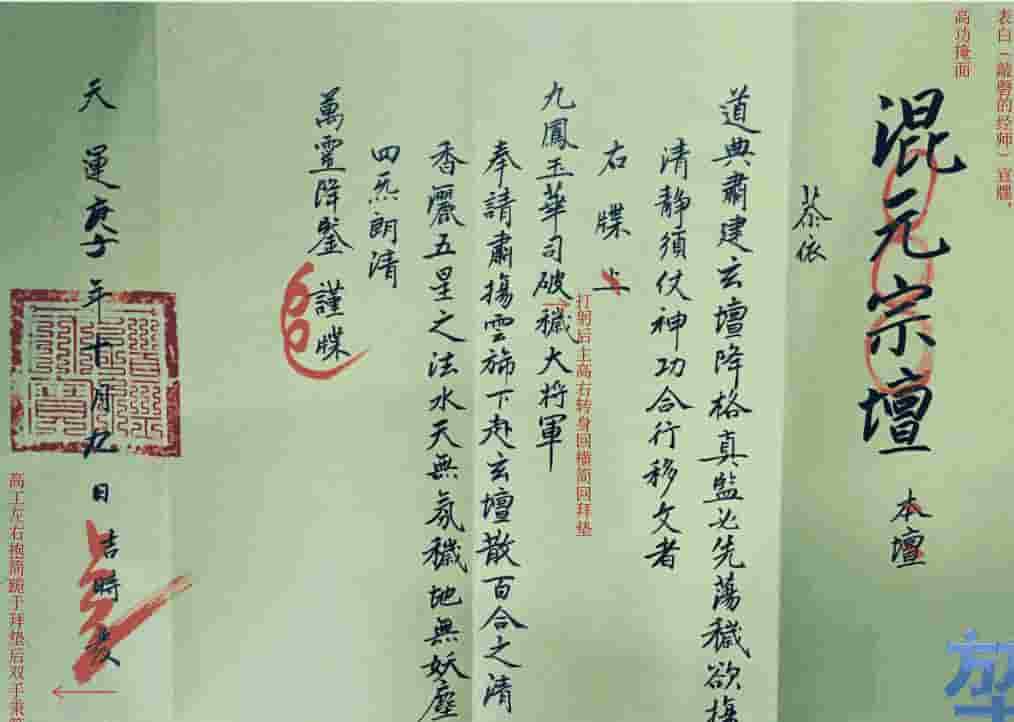 表白（敲磬的经师）宣牒，
高功掩面
混元宗壇 本壇
恭依
道典肅建玄壇降格真監必先蕩穢欲
清静須仗神功合行移文者
右牒上
打躬后主高右转身回横简回拜垫
九鳳玉華司破穢大将軍
奉請肅揚雲斾下赴玄壇散百合之清
香灑五星之法水天無氛穢地無妖塵
四炁朗清
萬霊降鑒 謹牒
天運庚子年十月九日吉時發
高工左右抱简跪于拜垫后双手秉简